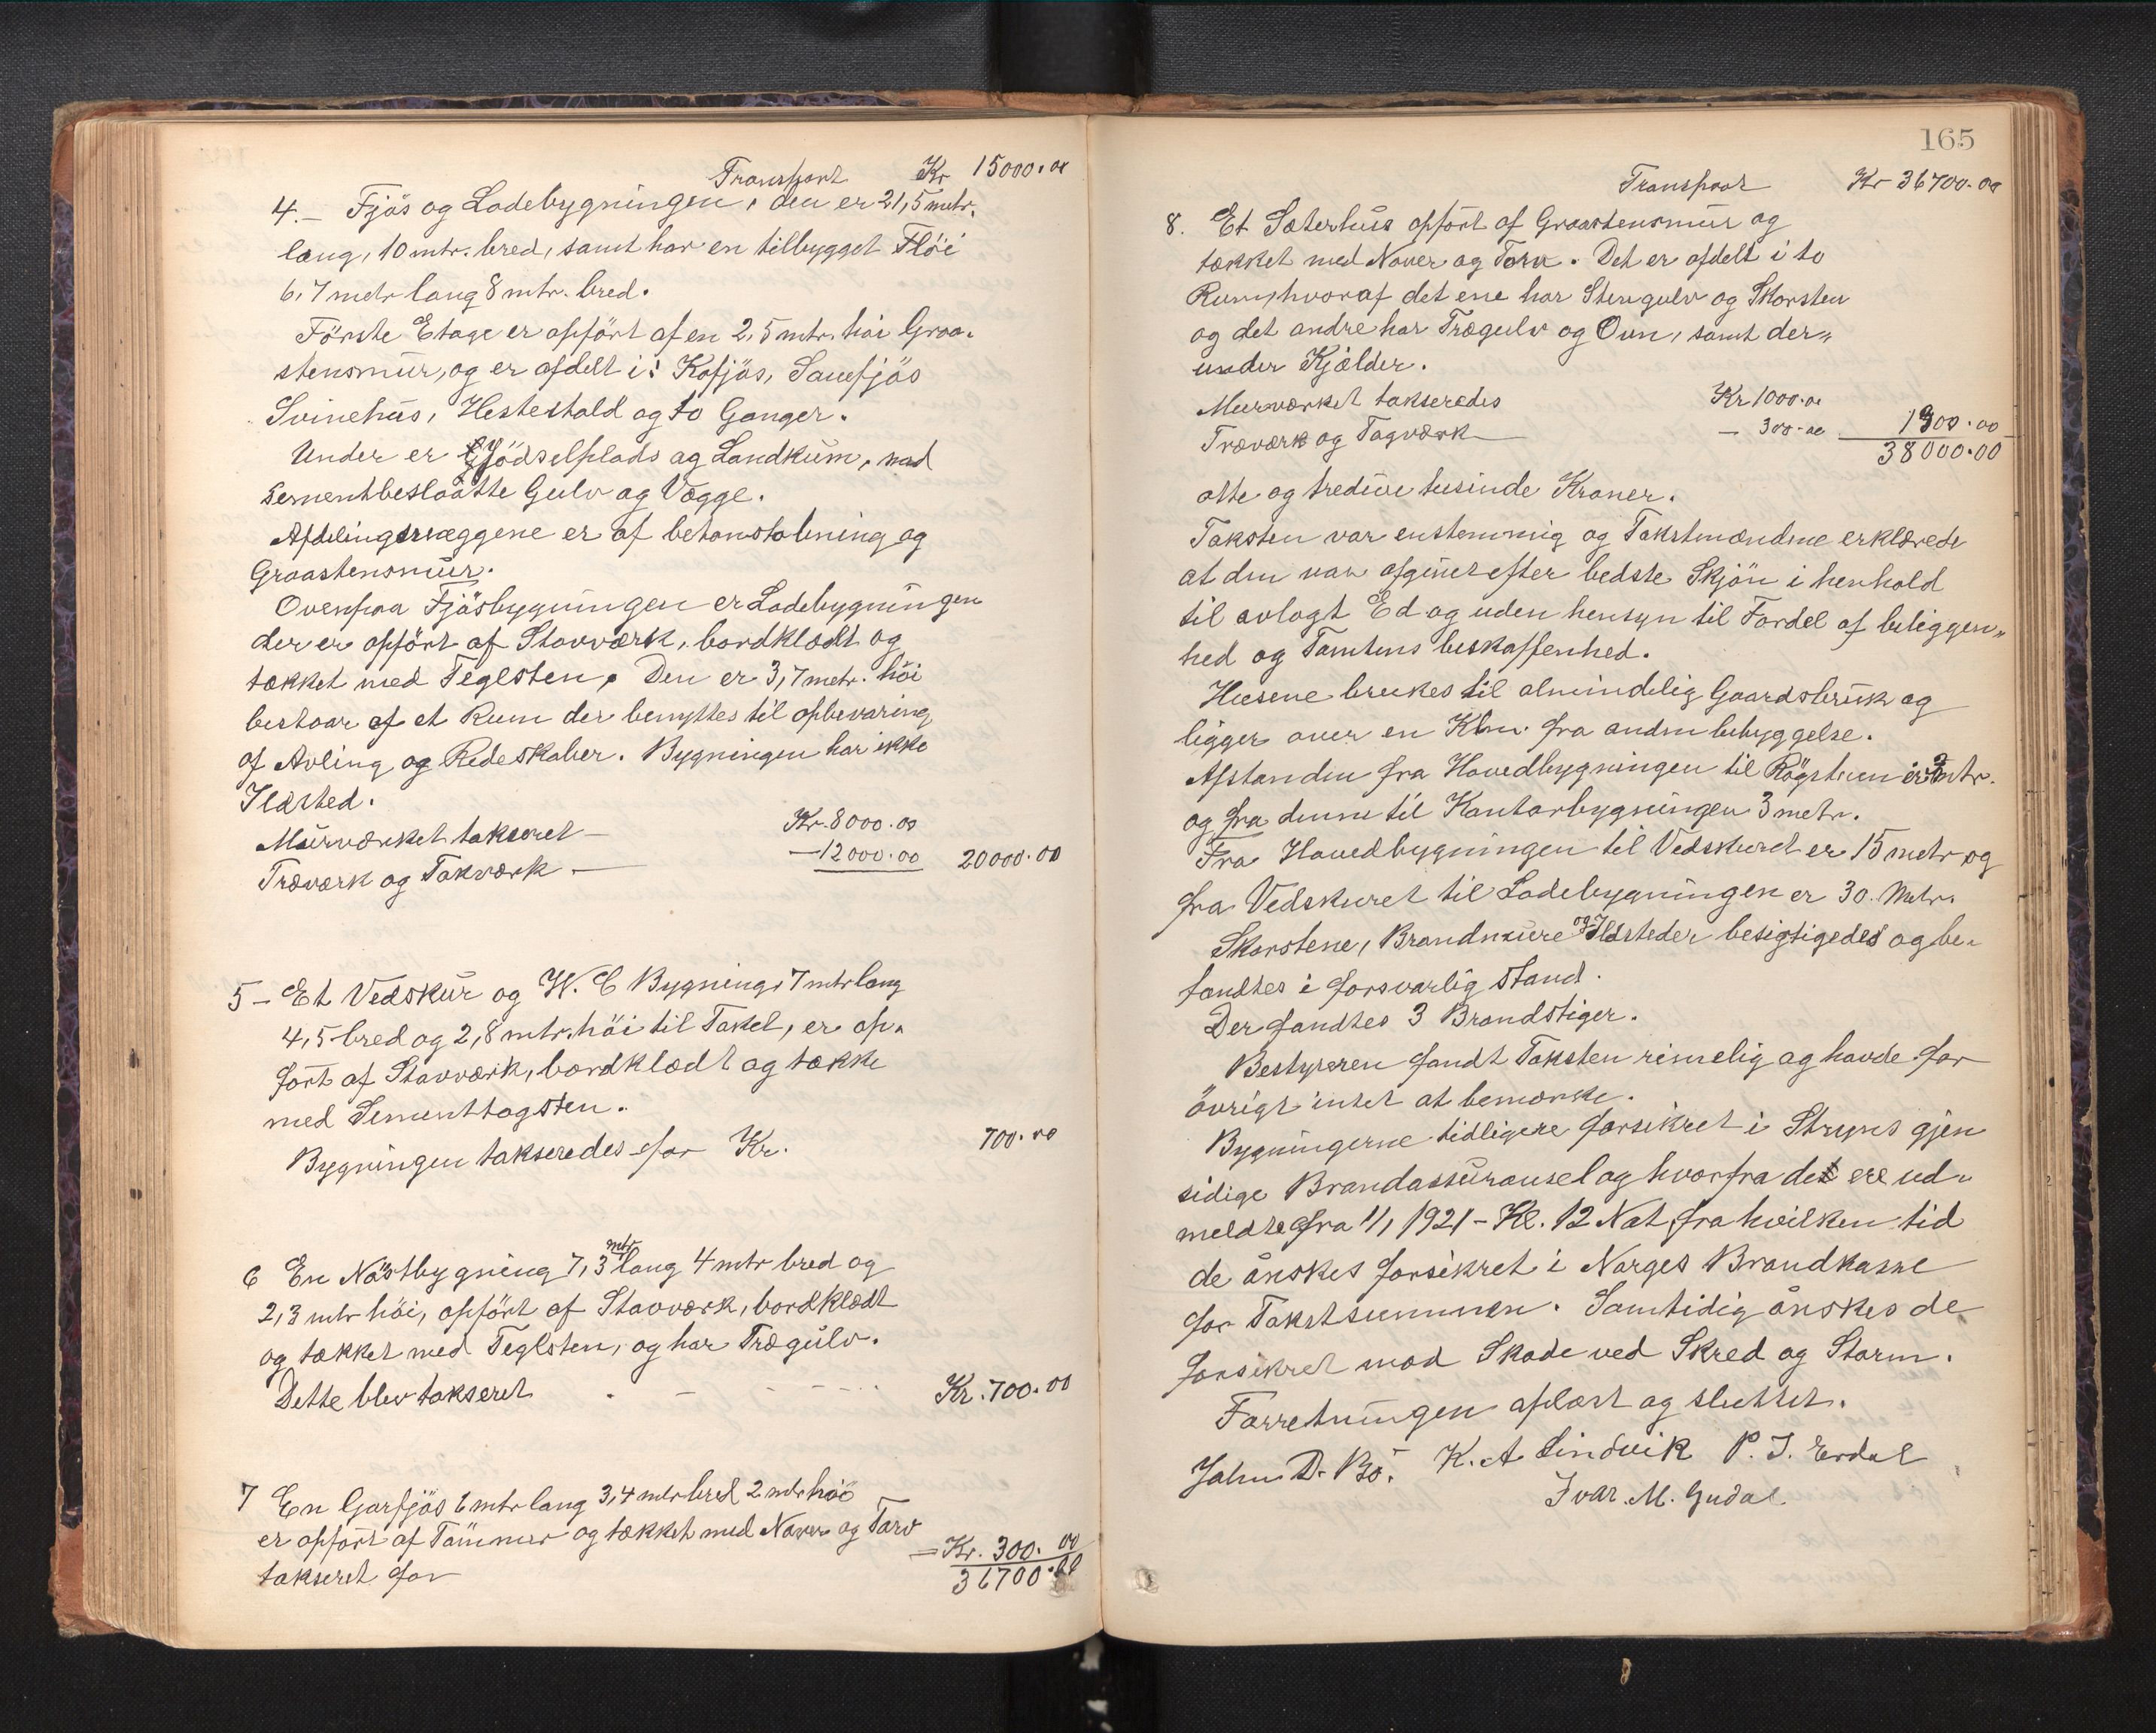 Transport Kr 15000.00
4.- Fjös og Ladebygningen, den er 21,5 metr.
lang, 10 mtr. bred, samt har en tilbygget Flöi
6,7 metr lang 8 mtr. bred.
Förste Etage er opfört af en 2,5 mtr. höi Graa-
stensmur, og er afdelt i: Kofjös, Sauefjös
Svinehus, Hestestald og to Ganger.
Under er Gjödselplads og Landkum, med
sementbeslaatte Gulv og Vægge.
Afdelingsvæggene er af betonstöbning og
Graastensmur.
Ovenpaa Fjösbygningen er Ladebygningen
der er opfört af Stavværk, bordklædt og
tækket med Teglsten. Den er 3,7 metr. höi
bestaar af et Rum der benyttes til opbevaring
af Avling og Redeskaber. Bygningen har ikke
Ildsted.
Murværket takseret - Kr. 8000.00
Træværk og Takværk - - 12000.00 20000.00
5 - Et Vedskur og W.C Bygning, 7 mtr lang
4,5 bred og 2,8 mtr. höi til Taket, er op-
fört af Stavværk, bordklædt og tække
med Sementtagsten.
Bygningen takseredes for Kr. 700.00
6 En Nöstbygning 7,3 mtr lang 4 mtr bred og
2,3 mtr höi, opfört af Stavværk, bordklædt
og tækket med Teglsten, og har Trægulv.
Dette blev takseret Kr. 700.00
7 En Garfjös 6 mtr lang 3,4 mtr bred 2 mtr höi
er opfört af Tömmer og tækket med Næver og Tarv
takseret for = Kr. 300.00
36700.00
165
Transport Kr 36700.00
8. Et Sæterhus opfört af Graastensmur og
tækket med Næver og Torv. Det er afdelt i to
Rum, hvoraf det ene har Stengulv og Skorsten
og det andre har Trægulv og Ovn, samt der-
under Kjælder.
Murværket takseredes Kr 1000.00
Træværk og Tagværk - 300.00 1300.00
38000.00
otte og tredive tusinde Kroner.
Taksten var enstemmig og Takstmændene erklærede
at den var afgivet efter bedste Skjön i henhold
til avlagt Ed og uden hensyn til Fordel af beliggen-
hed og Tomtens beskaffenhed.
Husene brukes til almindelig Gaardsbruk og
ligger over en Klm. fra anden bebyggelse.
Afstanden fra Hovedbygningen til Rögstuen er 2 mtr.
og fra denne til Kontorbygningen 3 metr.
Fra Hovedbygningen til Vedskuret er 15 metr og
fra Vedskuret til Ladebygningen er 30. Metr.
Skorstene, Brandmure og Ildsteder besigtigedes og be-
fandtes i forsvarlig Stand.
Der fandtes 3 Brandstiger.
Bestyreren fandt Taksten rimelig og havde for
övrigt intet at bemærke.
Bygningerne tidligere forsikret i Stryns gjen
sidige Brandassuransel og hvorfra det ere ud-
meldte fra 1/1 1921 - Kl. 12 Nat, fra hvilken tid
de önskes forsikret i Norges Brandkasse
for Takstsummen. Samtidig önskes de
forsikret mod Skade ved Skred og Storm.
Forretningen oplæst og sluttet.
John D. Bö. K. A Lindvik P. J. Erdal
Ivar. M. Gudal